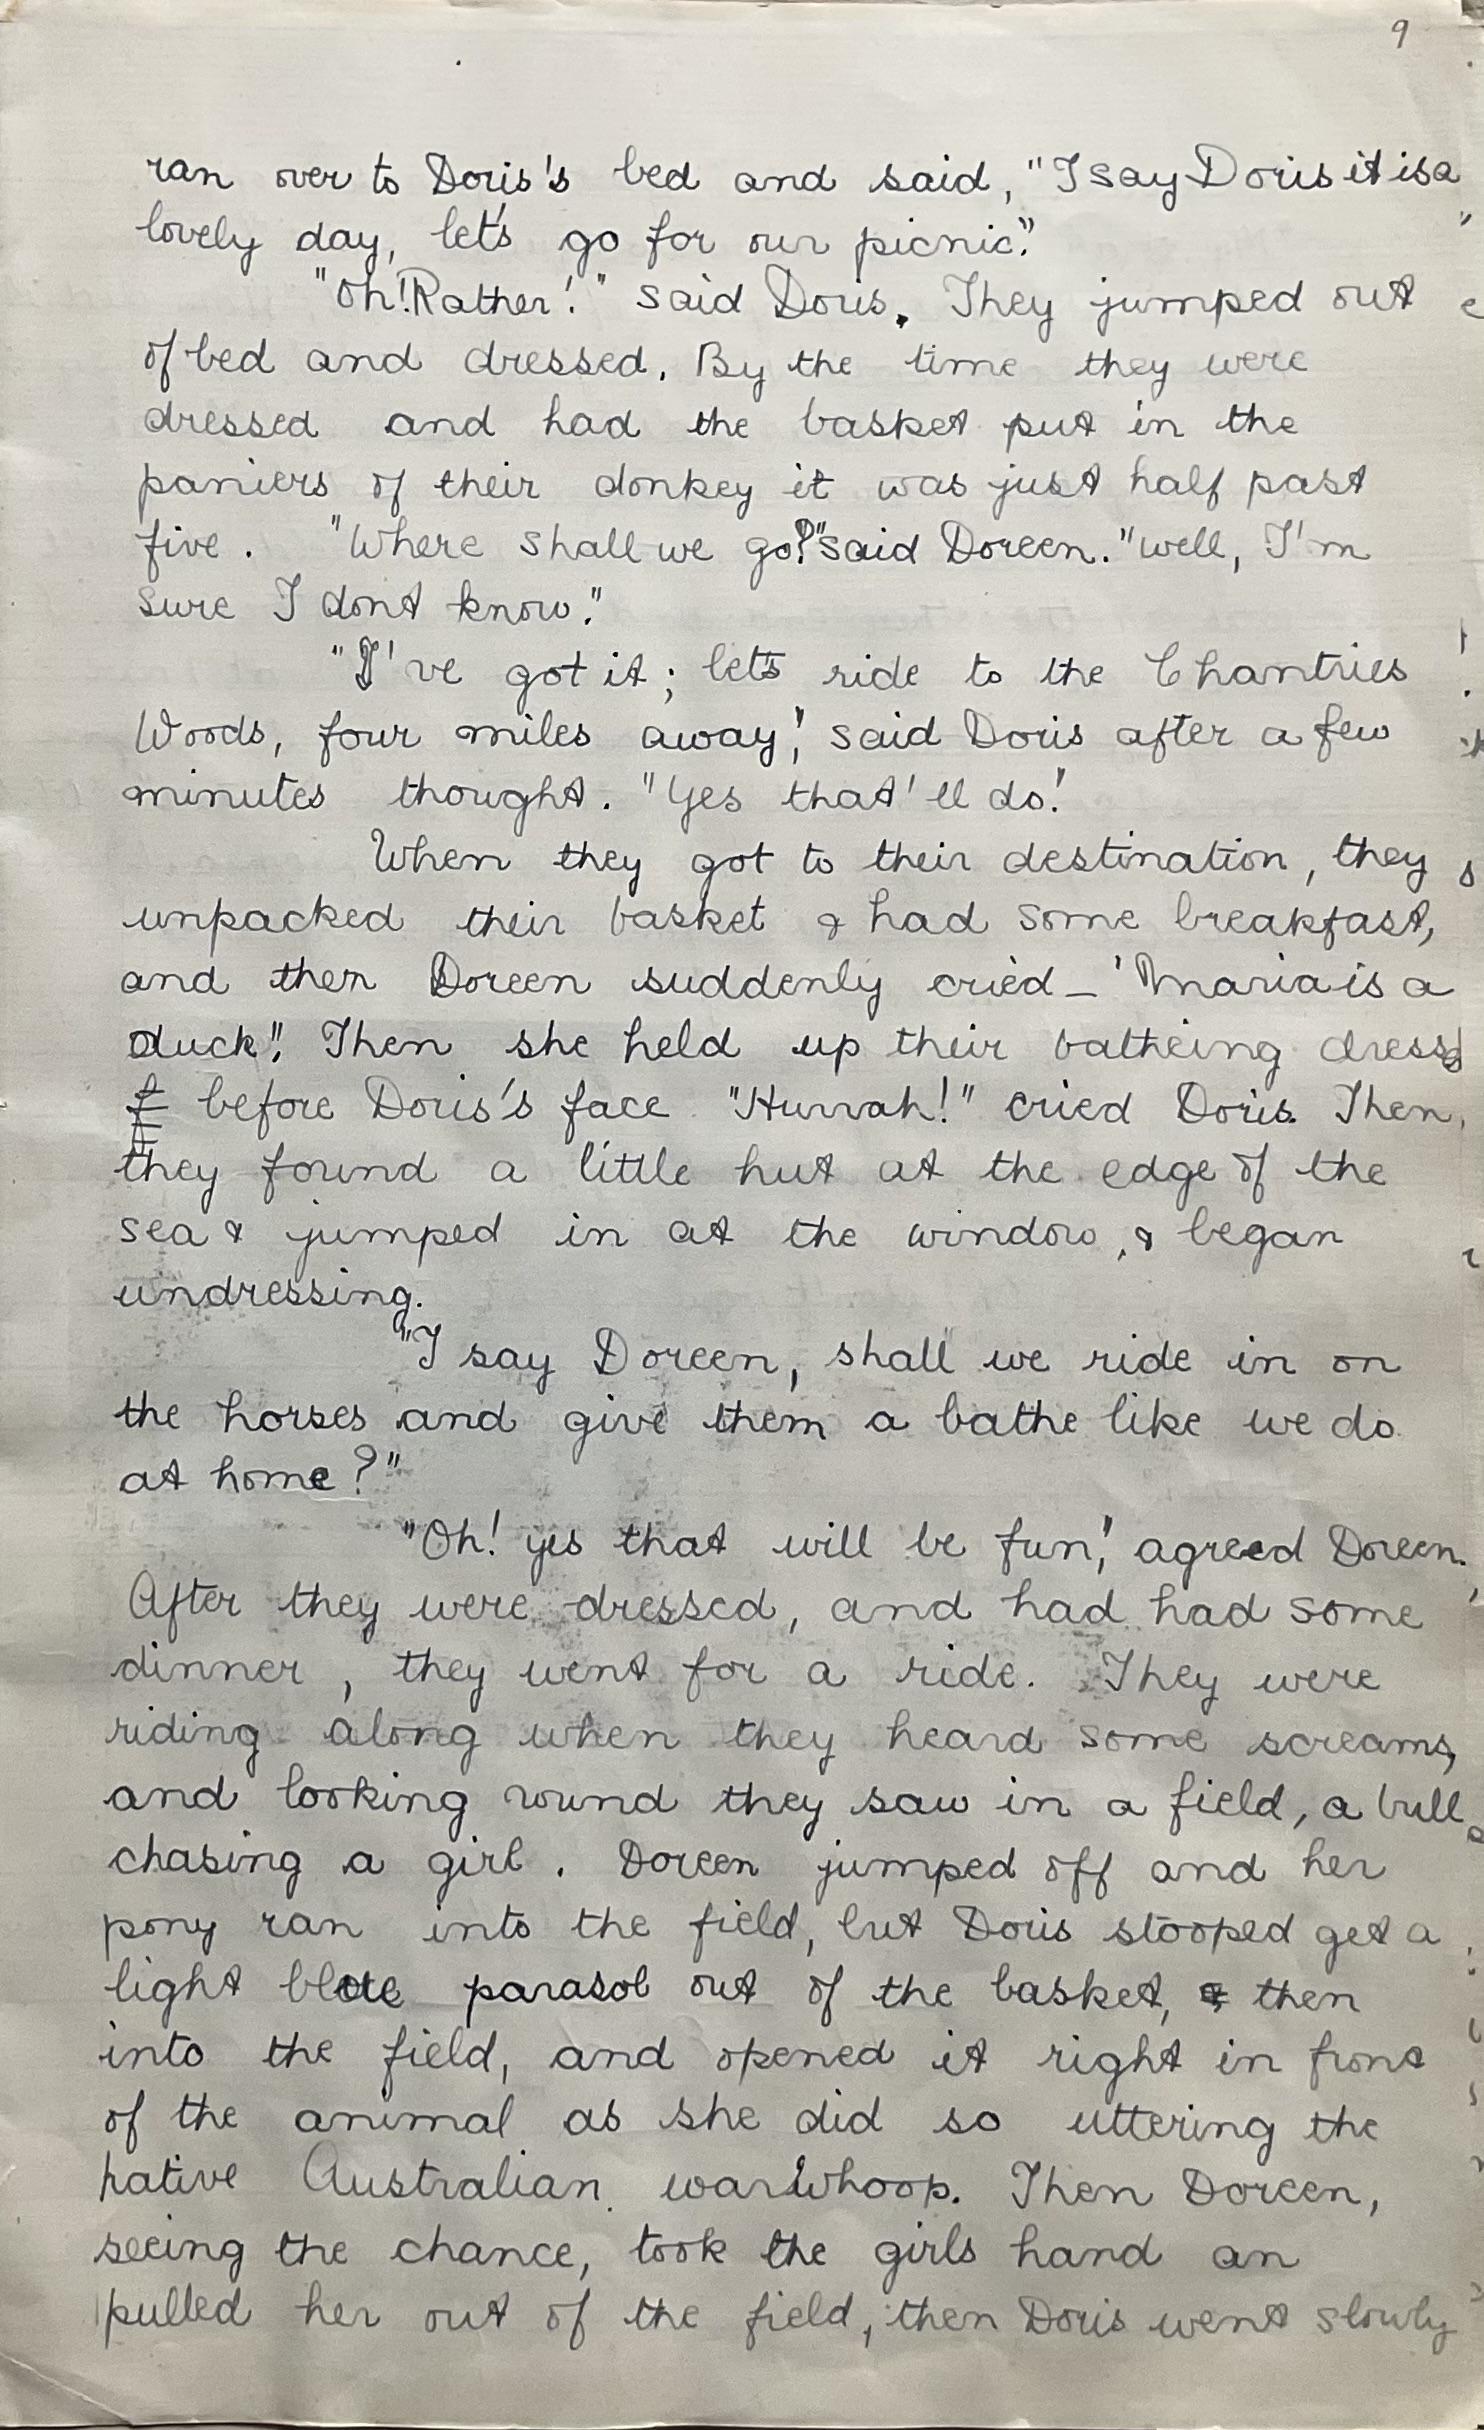 9
ran over to Doris's bed and said, "I say Doris it is a
lovely day, let's go for our picnic."
"Oh! Rather!" said Doris. They jumped out
of bed and dressed. By the time they were
dressed and had the basket put in the
paniers of their donkey it was just half past
five. "Where shall we go?" said Doreen. "well, I'm
sure I dont know."
"I've got it; let's ride to the Chantries
Woods, four miles away," said Doris after a few
minutes thought. "Yes that'll do."
When they got to their destination, they
unpacked their basket & had some breakfast,
and then Doreen suddenly cried - 'Maria is a
duck". Then she held up their batheing dress
before Doris's face "Hurrah!" cried Doris. Then,
they found a little hut at the edge of the
sea & jumped in at the window, & began
undressing.
"I say Doreen, shall we ride in on
the horses and give them a bathe like we do
at home?"
"Oh! yes that will be fun," agreed Doreen.
After they were dressed, and had had some
dinner, they went for a ride. They were
riding along when they heard some screams,
and looking round they saw in a field, a bull
chasing a girl. Doreen jumped off and her
pony ran into the field, but Doris stooped get a
light blue parasol out of the basket, & then
into the field, and opened it right in front
of the animal as she did so uttering the
native Australian warwhoop. Then Doreen,
seeing the chance, took the girls hand an
pulled her out of the field, then Doris went slowly